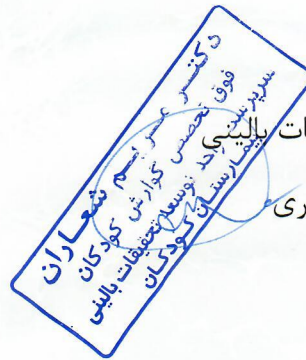 دکتر مریم شعاران
فوق تخصص گوارش کودکان
سرپرست واحد توسعه تحقیقات بالینی
بیمارستان کودکان
ات بالینی
ری